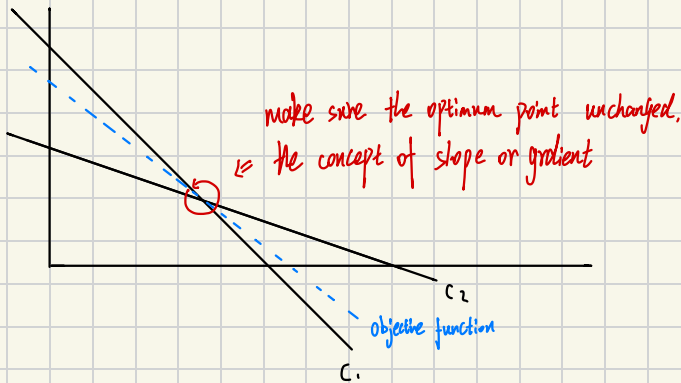 make sure the optimum point unchanged.
⇐ the concept of slope or grdient
C2
objective function
C1